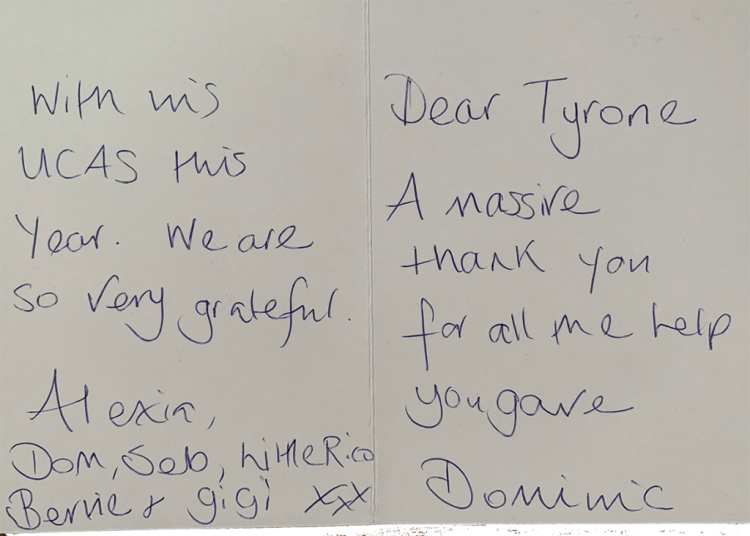 Dear Tyrone
A massive
thank you
for all the help
you gave
Dominic
With his
UCAS this
Year. We are
so very grateful.
Alexia,
Dom, Seb, Little Rico
Bernie & gigi xxx